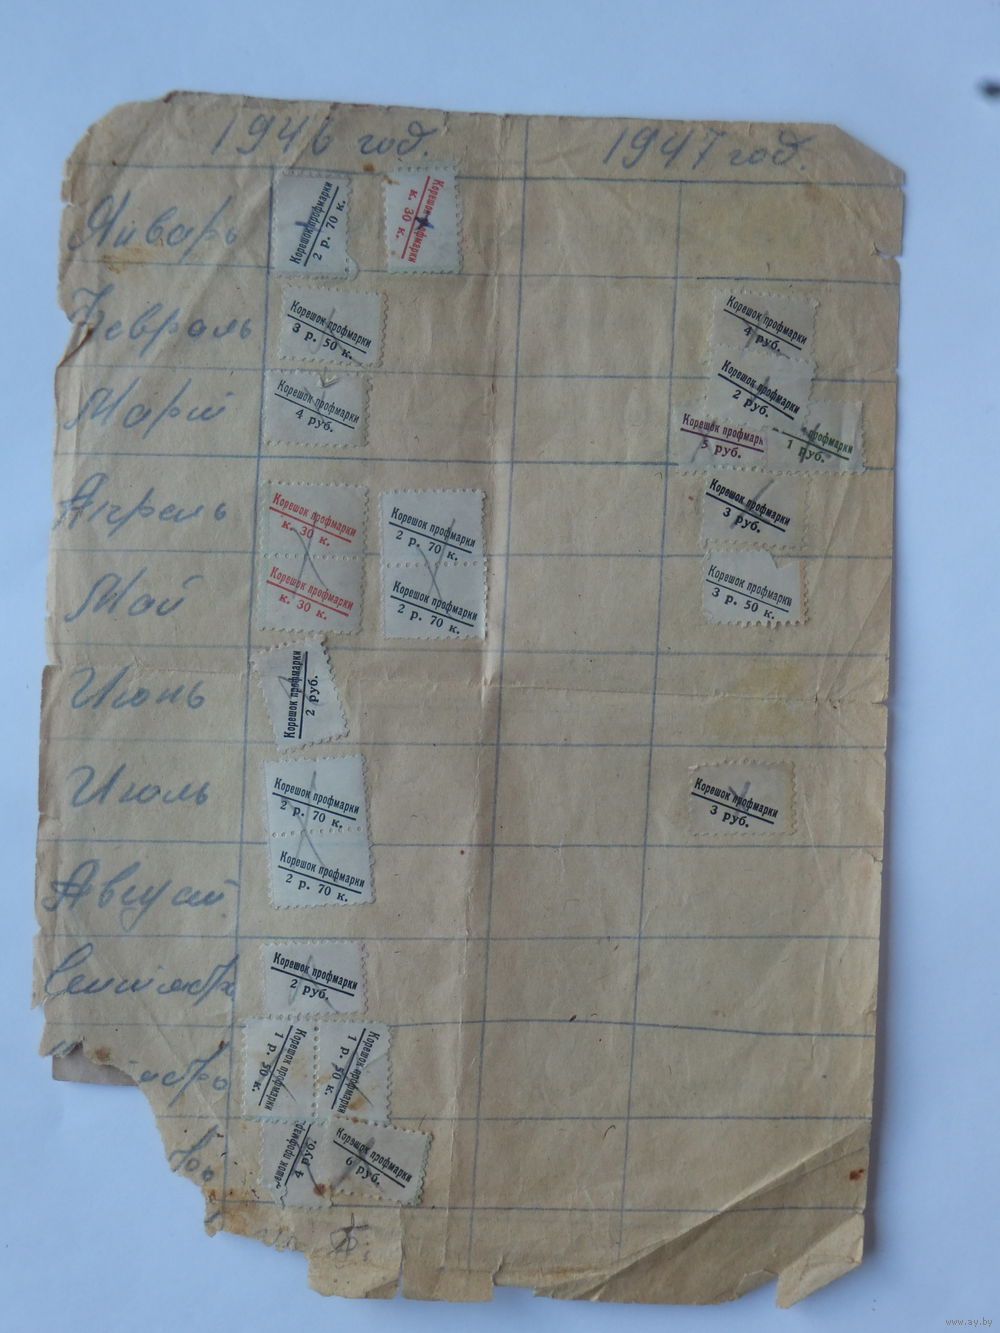 1946 год. 1947 год.
Январь
Корешок профмарки
2 р. 70 к.
Корешок профмарки
к. 30 к.
Февраль
Корешок профмарки
3 р. 50 к.
Корешок профмарки
4 руб.
Март
Корешок профмарки
4 руб.
Корешок профмарки
2 руб.
Корешок профмарк
5 руб.
профмарки
1 руб.
Апрель
Корешок профмарки
к. 30 к.
Корешок профмарки
2 р. 70 к.
Корешок профмарки
3 руб.
Май
Корешок профмарки
к. 30 к.
Корешок профмарки
2 р. 70 к.
Корешок профмарки
3 р. 50 к.
Июнь
Корешок профмарки
2 руб.
Июль
Корешок профмарки
2 р. 70 к.
Корешок профмарки
3 руб.
Август
Корешок профмарки
2 р. 70 к.
Сентябрь
Корешок профмарки
2 руб.
Корешок профмарки
1 р. 50 к.
Корешок профмарки
1 р. 50 к.
профмар
4 руб.
Корешок профмарки
6 руб.
www.ay.by